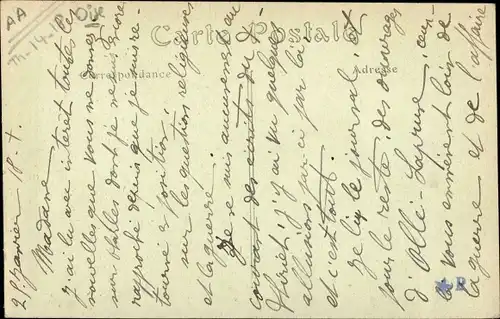 AA
Carte Postale
Correspondance
Adresse
29 janvier 18 -
Madame
j'ai lu avec intérêt toutes les
nouvelles que vous me donnez
sur dont je me suis encore
rapproché depuis que je suis re-
tourné position.
sur les questions religieuses
et la guerre. Je ne suis aucunement au
courant des écrits du P.
j'y ai vu quelques
allusions par ci par là
et c'est tout.
Je lis le journal, et
pour le reste, des ouvrages
d'Ollé-Laprune,
là vous emmènent loin de
la guerre et de l'affaire